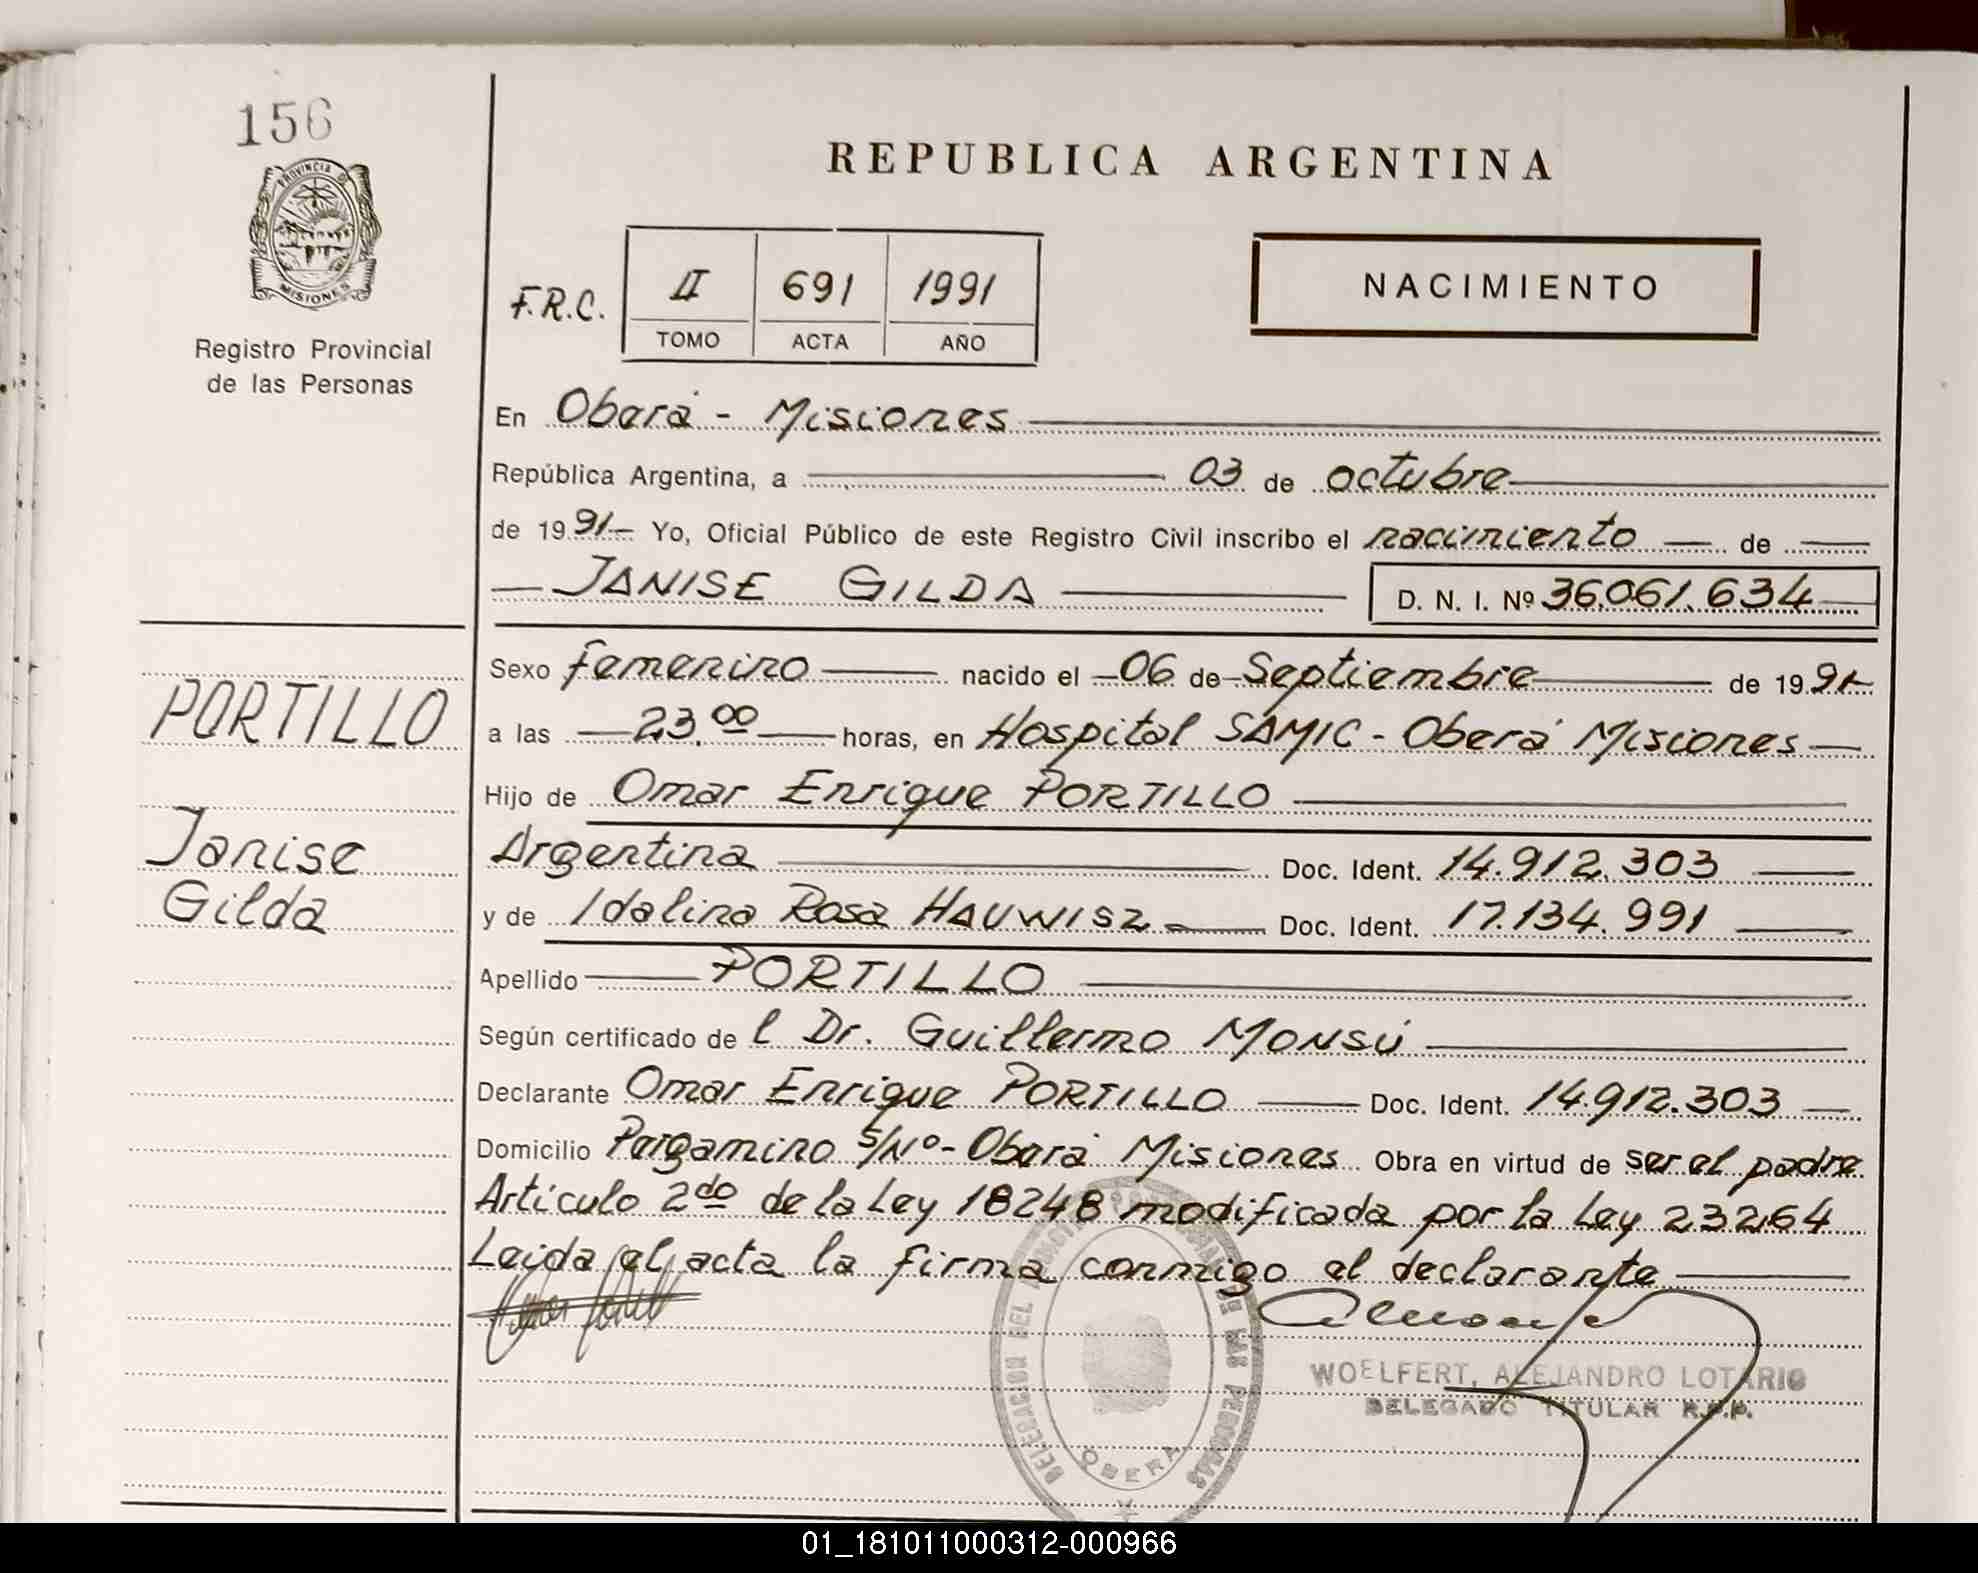 156
PROVINCIA DE
MISIONES
Registro Provincial
de las Personas
REPUBLICA ARGENTINA
F.R.C. II 691 1991
TOMO ACTA AÑO
NACIMIENTO
En Oberá - Misiones
República Argentina, a 03 de octubre
de 1991 Yo, Oficial Público de este Registro Civil inscribo el nacimiento de
JANISE GILDA D. N. I. Nº 36.061.634
Sexo femenino nacido el 06 de Septiembre de 1991
a las 23,00 horas, en Hospital SAMIC - Oberá Misiones
Hijo de Omar Enrique PORTILLO
Argentina Doc. Ident. 14.912.303
y de Idalina Rosa HAUWISZ Doc. Ident. 17.134.991
Apellido PORTILLO
Según certificado de l Dr. Guillermo MONSÚ
Declarante Omar Enrique PORTILLO Doc. Ident. 14.912.303
Domicilio Pergamino S/Nº - Oberá Misiones Obra en virtud de ser el padre
Artículo 2do de la Ley 18248 modificada por la Ley 23264
Leida el acta la firma conmigo el declarante
PORTILLO
Janise
Gilda
WOELFERT, ALEJANDRO LOTARIO
DELEGADO TITULAR R.P.P.
DELEGACION DEL REGISTRO PROVINCIAL DE LAS PERSONAS
OBERA
01_181011000312-000966